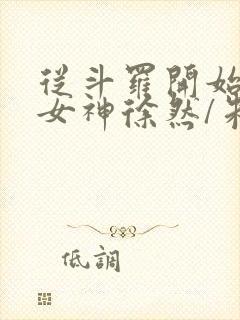 從斗羅開始
女神徐然/朱
低調